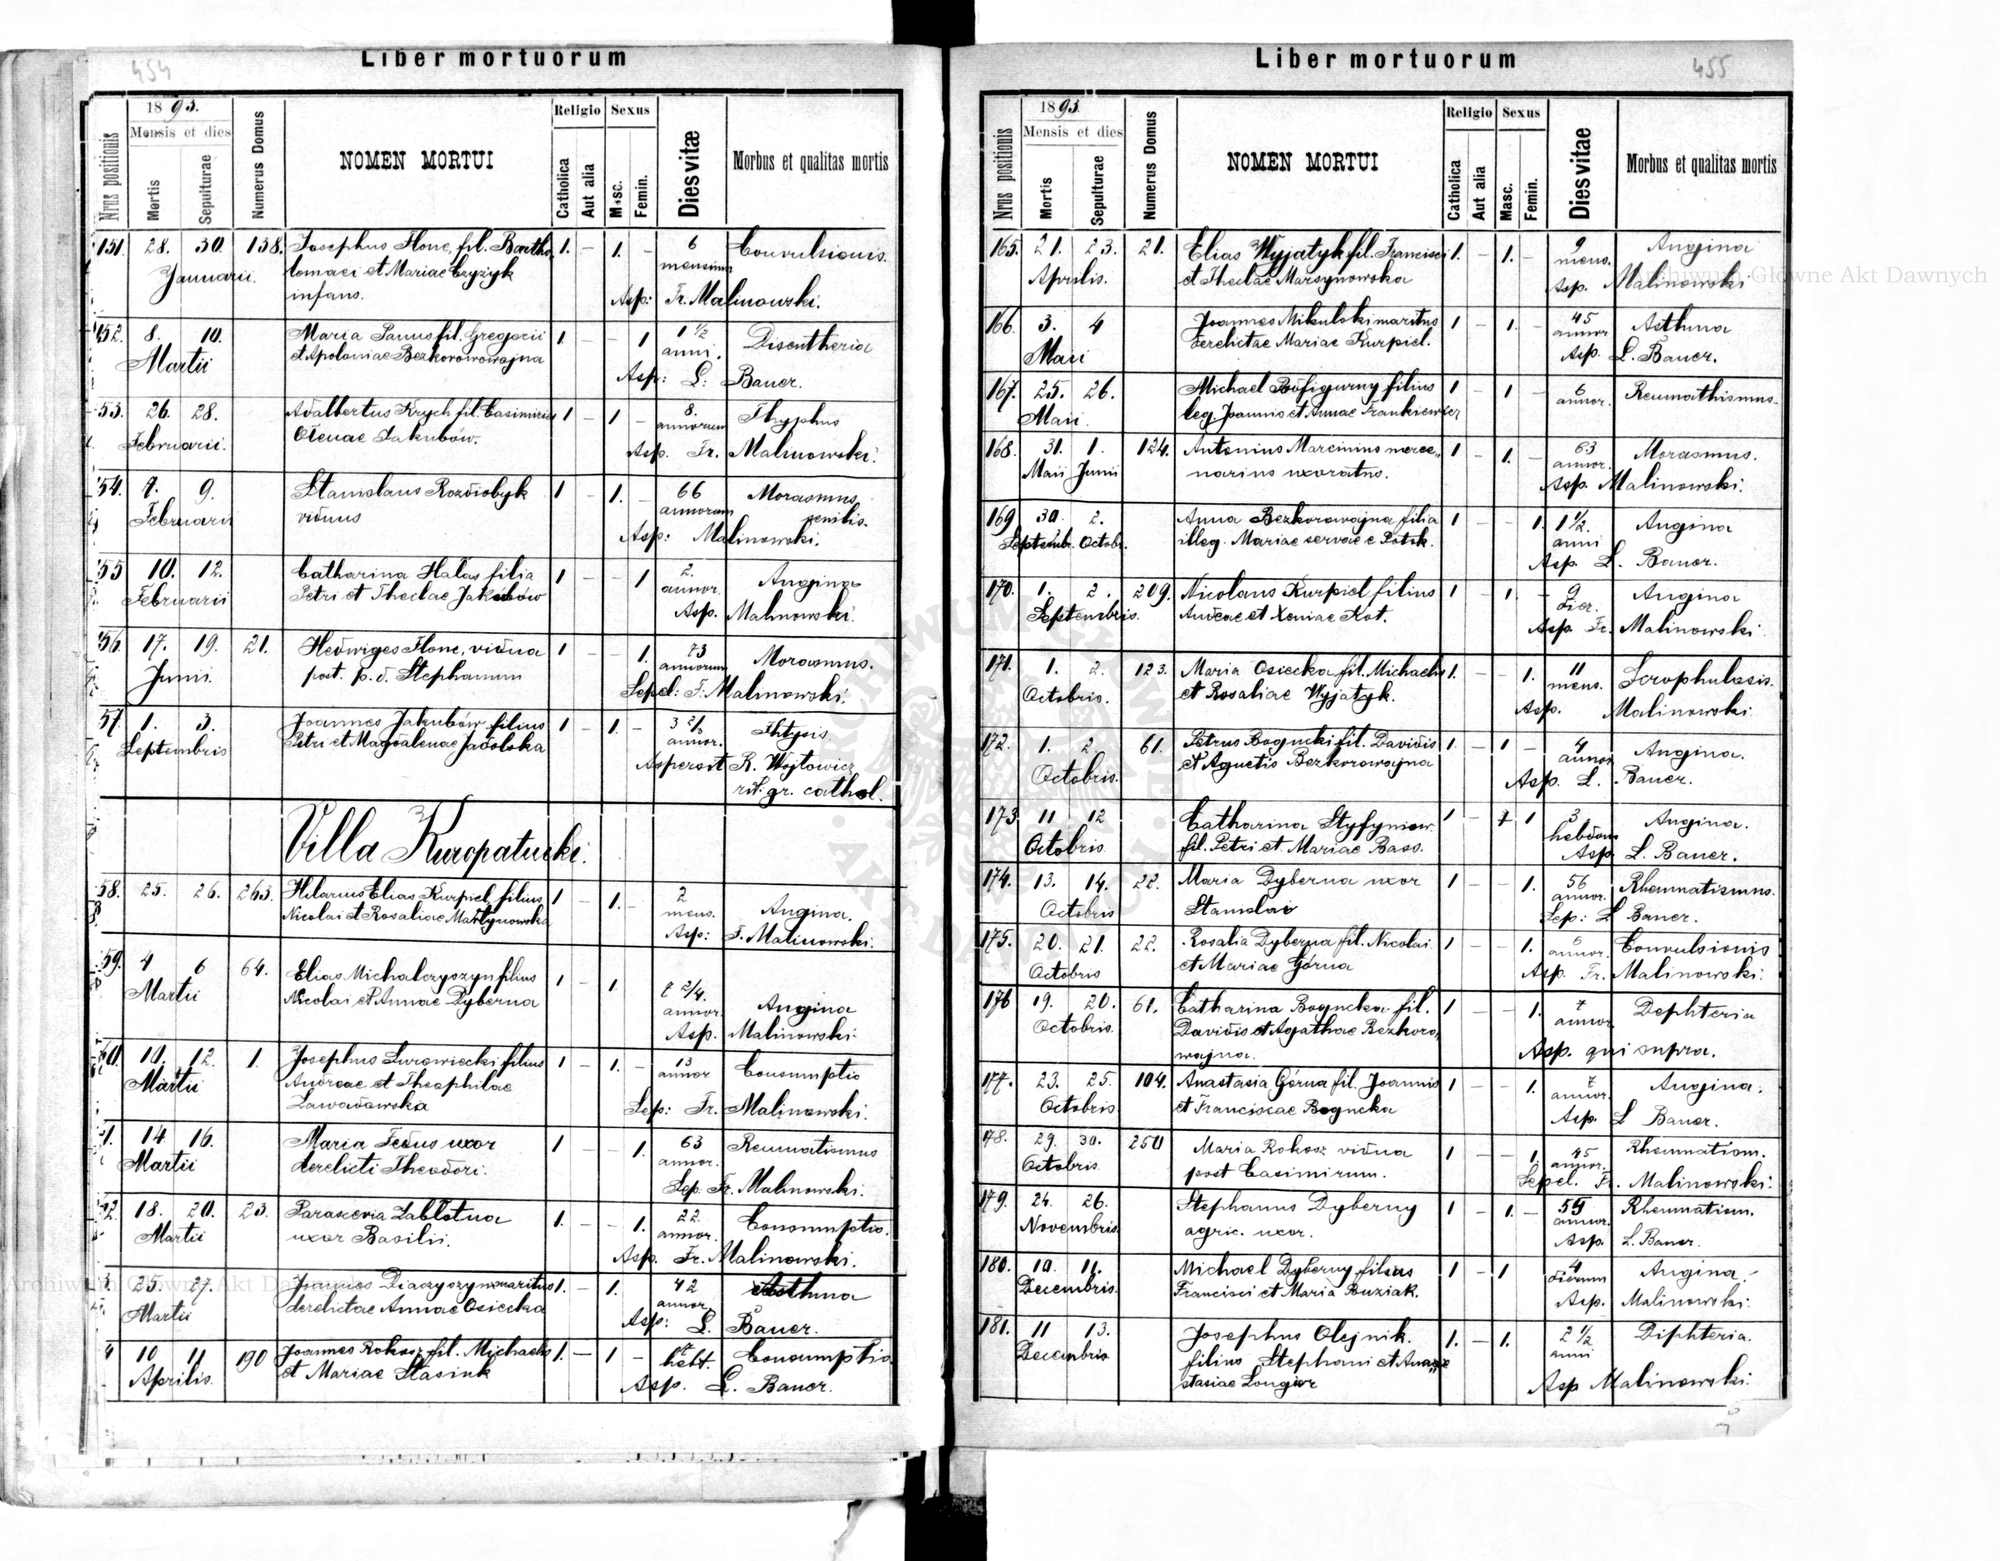 454
Liber mortuorum
Nrus positionis
18 93.
Mensis et dies
Mortis
Sepulturae
Numerus Domus
NOMEN MORTUI
Religio
Catholica
Aut alia
Sexus
Masc.
Femin.
Dies vitæ
Morbus et qualitas mortis
151. 28. 30. 138. Josephus Hone, fil. Bartho- 1. - 1. - 6 Convulsionis.
Januarii. lomaei et Mariae Czyżyk mensium
infans. Asp: Fr. Malinowski.
152. 8. 10. Maria Panus fil. Gregorii 1. - - 1 1 1/2 Disentheria
Martii et Apoloniae Bezkorowajna anni.
Asp: L: Bauer.
53. 26. 28. Adalbertus Krych fil. Casimiri 1 - 1 - 8. Thyphus
Februarii. Jakubów. annorum
Asp. Fr. Malinowski.
54. 7. 9. Stanislaus Rozdiobyk 1 - 1. - 66 Morasmus
Februarii viduus annorum senilis.
Asp: Malinowski.
55 10. 12. Catharina Halas filia 1 - - 1 2. Angina
Februarii Petri et Theclae Jakubów annor.
Asp. Malinowski.
56. 17. 19. 21. Hedwiges Hone, vidua 1 - - 1. 73 Morasmus.
Junii. post. p. d. Stephanum annorum
Sepel: F. Malinowski.
57. 1. 3. Joannes Jakubów filius 1 - 1. - 3 2/3 Phtysis.
Septembris Petri et Magdalenae Jadolska annor.
Aspersit R. Wojtowicz
rit. gr. cathol.
Villa Kuropatniki.
58. 25. 26. 263. Hilarius Elias Kurpiel filius 1 - 1. - 2 Angina.
Nicolai et Rosaliae Martynowska mens.
Asp: F. Malinowski.
59. 4 6 64. Elias Michalczyszyn filius 1 - 1. 2/4. Angina
Martii Nicolai et Annae Dyberna annor.
Asp. Malinowski.
60. 10. 12. 1. Josephus Surowiecki filius 1 - 1. - 13 Consumptio
Martii Andreae et Theophilae annor
Zawadowska Sep: Fr. Malinowski.
1. 14. 16. Maria Fedus uxor 1 - - 1. 63 Reumatismus
Martii derelicti Theodori. annor.
Sep: Fr. Malinowski.
2. 18. 20. 23. Parascevia Zabłotna 1. - - 1. 22. Consumptio.
Martii uxor Basilii. annor.
Asp. Fr. Malinowski.
3. 25. 27. Joannes Diaczyszyn maritus 1. - 1. 42 Asthma
Martii derelictae Annae Osiecka annor.
Asp: L. Bauer.
4 10 11 190 Joannes Rokosz fil. Michaelis 1. - 1 - hebt. Consumptio
Aprilis. et Mariae Stasiuk
Asp. L. Bauer.
455
Liber mortuorum
Nrus positionis
18 93.
Mensis et dies
Mortis
Sepulturae
Numerus Domus
NOMEN MORTUI
Religio
Catholica
Aut alia
Sexus
Masc.
Femin.
Dies vitae
Morbus et qualitas mortis
165. 21. 23. 21. Elias Wyjatyk fil. Francisci 1. - 1. - 9 Angina
Aprilis. et Theclae Marsynowska mens.
Asp. Malinowski
166. 3. 4 Joannes Mikulski maritus 1 - 1. - 45 Asthma
Maii derelictae Mariae Kurpiel. annor
Asp. L. Bauer.
167. 25. 26. Michael Podfigurny filius 1 - 1 - 6 Reumathismus.
Maii. leg. Joannis et Annae Frankiewicz annor.
168. 31. 1. 124. Antonius Marcinius merce- 1 - 1. - 63 Morasmus.
Maii Junii narius uxoratus. annor.
Asp. Malinowski.
169 30. 2. Anna Bezkorowajna filia 1 - - 1. 1 1/2. Angina
Septemb. Octobr. illeg. Mariae servae e Potok. anni
Asp. L. Bauer.
170. 1. 2. 209. Nicolaus Kurpiel filius 1 - 1. - 9 Angina
Septembris. Andreae et Xeniae Kot. dier.
Asp. Fr. Malinowski.
171. 1. 2. 123. Maria Osiecka fil. Michaelis 1. - - 1. 11 Scrophulosis.
Octobris. et Rosaliae Wyjatyk. mens.
Asp. Malinowski.
172. 1. 2 61. Petrus Bogucki fil. Davidis 1. - 1 - 4 Angina.
Octobris. et Agnetis Bezkorowajna annor
Asp. L. Bauer.
173 11 12 Catharina Styfyniow. 1 - 1 3 Angina.
Octobris. fil. Petri et Mariae Bass. hebdom
Asp. L. Bauer.
174. 13. 14. 22. Maria Dyberna uxor 1 - - 1. 56 Rheumatismus.
Octobris Stanislai annor.
Sep: L Bauer.
175. 20. 21. 22. Rosalia Dyberna fil. Nicolai 1 - - 1. 6 Convulsionis
Octobris et Mariae Górna annor.
Asp. Fr. Malinowski.
176 19. 20. 61. Catharina Bogucka fil. 1 - - 1. 7 Dephteria
Octobris. Davidis et Agathae Bezkoro- annor
wajna. Asp. qui supra.
177. 23. 25. 104. Anastasia Górna fil. Joannis 1 - - 1. 7 Angina.
Octobris et Franciscae Bogucka annor.
Asp. L Bauer.
178. 29. 30. 250 Maria Rokosz vidua 1 - - 1. 45 Rheumatism.
Octobris. post Casimirum. annor.
Sepel. Fr. Malinowski.
179. 24. 26. Stephanus Dyberny 1 - 1. - 55 Rheumatism.
Novembris. agric. uxor. annor.
Asp. L. Bauer.
180. 10. 11. Michael Dyberny filius 1 - 1 4 Angina.
Decembris. Francisci et Maria Buziak. dierum
Asp. Malinowski.
181. 11 13. Josephus Olejnik. 1. - 1. - 2 1/2 Diphteria.
Decembris filius Stephani et Ana- anni
stasiae Longior
Asp Malinowski.
Archiwum Główne Akt Dawnych
Archiwum Główne Akt Dawnych